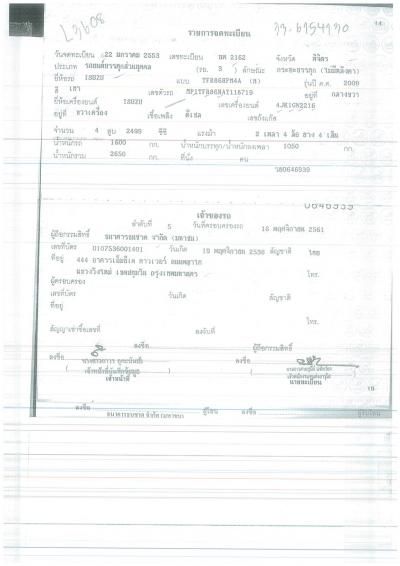 L3608
33-6154130
14
รายการจดทะเบียน
วันจดทะเบียน 22 มกราคม 2553 เลขทะเบียน 2162 จังหวัด พิจิตร
ประเภท รถยนต์บรรทุกส่วนบุคคล (รย. 3 ) ลักษณะ กระบะบรรทุก (ไม่มีหลังคา)
ยี่ห้อรถ ISUZU แบบ รุ่นปี ค.ศ. 2009
สี เทา เลขตัวรถ อยู่ที่ กลางขวา
ยี่ห้อเครื่องยนต์ ISUZU เลขเครื่องยนต์ 4JK1GN2216
อยู่ที่ ขวาเครื่อง เชื้อเพลิง ดีเซล เลขถังแก๊ส
จำนวน 4 สูบ 2499 ซีซี แรงม้า 2 เพลา 4 ล้อ ยาง 4 เส้น
น้ำหนักรถ 1600 กก. น้ำหนักบรรทุก/น้ำหนักลงเพลา 1050 กก.
น้ำหนักรวม 2650 กก. ที่นั่ง คน
0646939
0646939
เจ้าของรถ
ลำดับที่ 5 วันที่ครอบครองรถ 16 พฤศจิกายน 2561
ผู้ถือกรรมสิทธิ์ ธนาคารธนชาต จำกัด (มหาชน)
เลขที่บัตร 0107536001401 วันเกิด 19 พฤศจิกายน 2536 สัญชาติ ไทย
ที่อยู่ 444 อาคารเอ็มบีเค ทาวเวอร์ ถนนพญาไท
แขวงวังใหม่ เขตปทุมวัน กรุงเทพมหานคร โทร.
ผู้ครอบครอง
เลขที่บัตร วันเกิด สัญชาติ
ที่อยู่
โทร.
สัญญาเช่าซื้อเลขที่ ลงวันที่
ลงชื่อ ผู้ถือกรรมสิทธิ์
ลงชื่อ ลงชื่อ
เจ้าหน้าที่ นายทะเบียน
15
ลงชื่อ ผู้โอน ลงชื่อ ผู้รับโอน
ธนาคารธนชาต จำกัด (มหาชน)